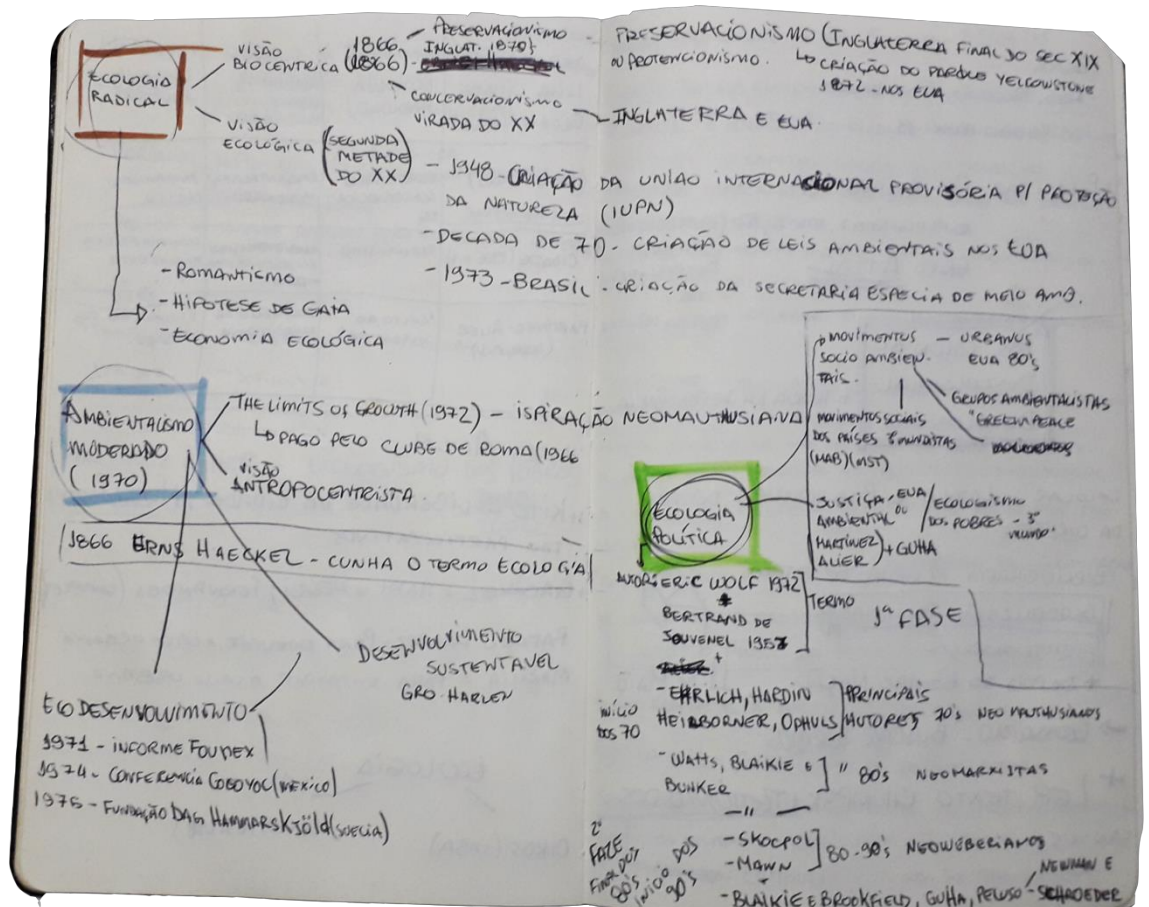 ECOLOGIA
RADICAL
VISÃO
BIOCENTRICA (1866)
1866
PRESERVACIONISMO
INGLAT. 1870
CONCERVACIONISMO
VIRADA DO XX
INGLATERRA E EUA
PRESERVACIONISMO (INGLATERRA FINAL DO SEC XIX
OU PROTENCIONISMO.
CRIAÇÃO DO PARQUE YELLOWSTONE
1872 - NOS EUA
VISÃO
ECOLÓGICA
(SEGUNDA
METADE
DO XX)
- 1948 - CRIAÇÃO DA UNIÃO INTERNACIONAL PROVISÓRIA P/ PROTEÇÃO
DA NATUREZA (IUPN)
- DECADA DE 70 - CRIAÇÃO DE LEIS AMBIENTAIS NOS EUA
- 1973 - BRASIL - CRIAÇÃO DA SECRETARIA ESPECIA DE MEIO AMB.
- ROMANTISMO
- HIPOTESE DE GAIA
- ECONOMIA ECOLÓGICA
AMBIENTALISMO
MODERADO
(1970)
THE LIMITS OF GROWTH (1972) - ISPIRAÇÃO NEOMAUTHUSIANA
PAGO PELO CLUBE DE ROMA (1966
VISÃO
ANTROPOCENTRISTA
1866 ERNS HAECKEL - CUNHA O TERMO ECOLOGIA
DESENVOLVIMENTO
SUSTENTAVEL
GRO HARLEN
ECODESENVOLVIMENTO
1971 - INFORME FOUNEX
1974 - CONFERENCIA COCOYOC (MEXICO)
1975 - FUNDAÇÃO DAG HAMMARSKJÖLD (SUECIA)
MOVIMENTOS
SOCIO AMBIEN-
TAIS.
- URBANUS
EUA 80's
GRUPOS AMBIENTALISTAS
"GREEN PEACE
MOVIMENTOS SOCIAIS
DOS PAÍSES 3º MUNDISTAS
(MAB) (MST)
ECOLOGIA
POLÍTICA
JUSTIÇA, EUA
AMBIENTAL OU
/ECOLOGISMO
DOS POBRES - 3º
MUNDO"
MARTÍNEZ
ALIER) + GUHA
AUTOR: ERIC WOLF 1972
+
BERTRAND DE
JOUVENEL 1957
TERMO
1ª FASE
INÍCIO
DOS 70
- EHRLICH, HARDIN
HEILBORNER, OPHULS
PRINCIPAIS
AUTORES 70's NEO MAUTHUSIANOS
- WATTS, BLAIKIE E
BUNKER
" 80's NEOMARXISTAS
— " —
2ª
FAZE
FINAL DOS
80's
INICIO DOS
90's
- SKOCPOL
- MAWN
80-90's NEOWEBERIANOS
NEWMAN E
- BLAIKIE E BROOKFIELD, GUHA, PELUSO - SCHROEDER